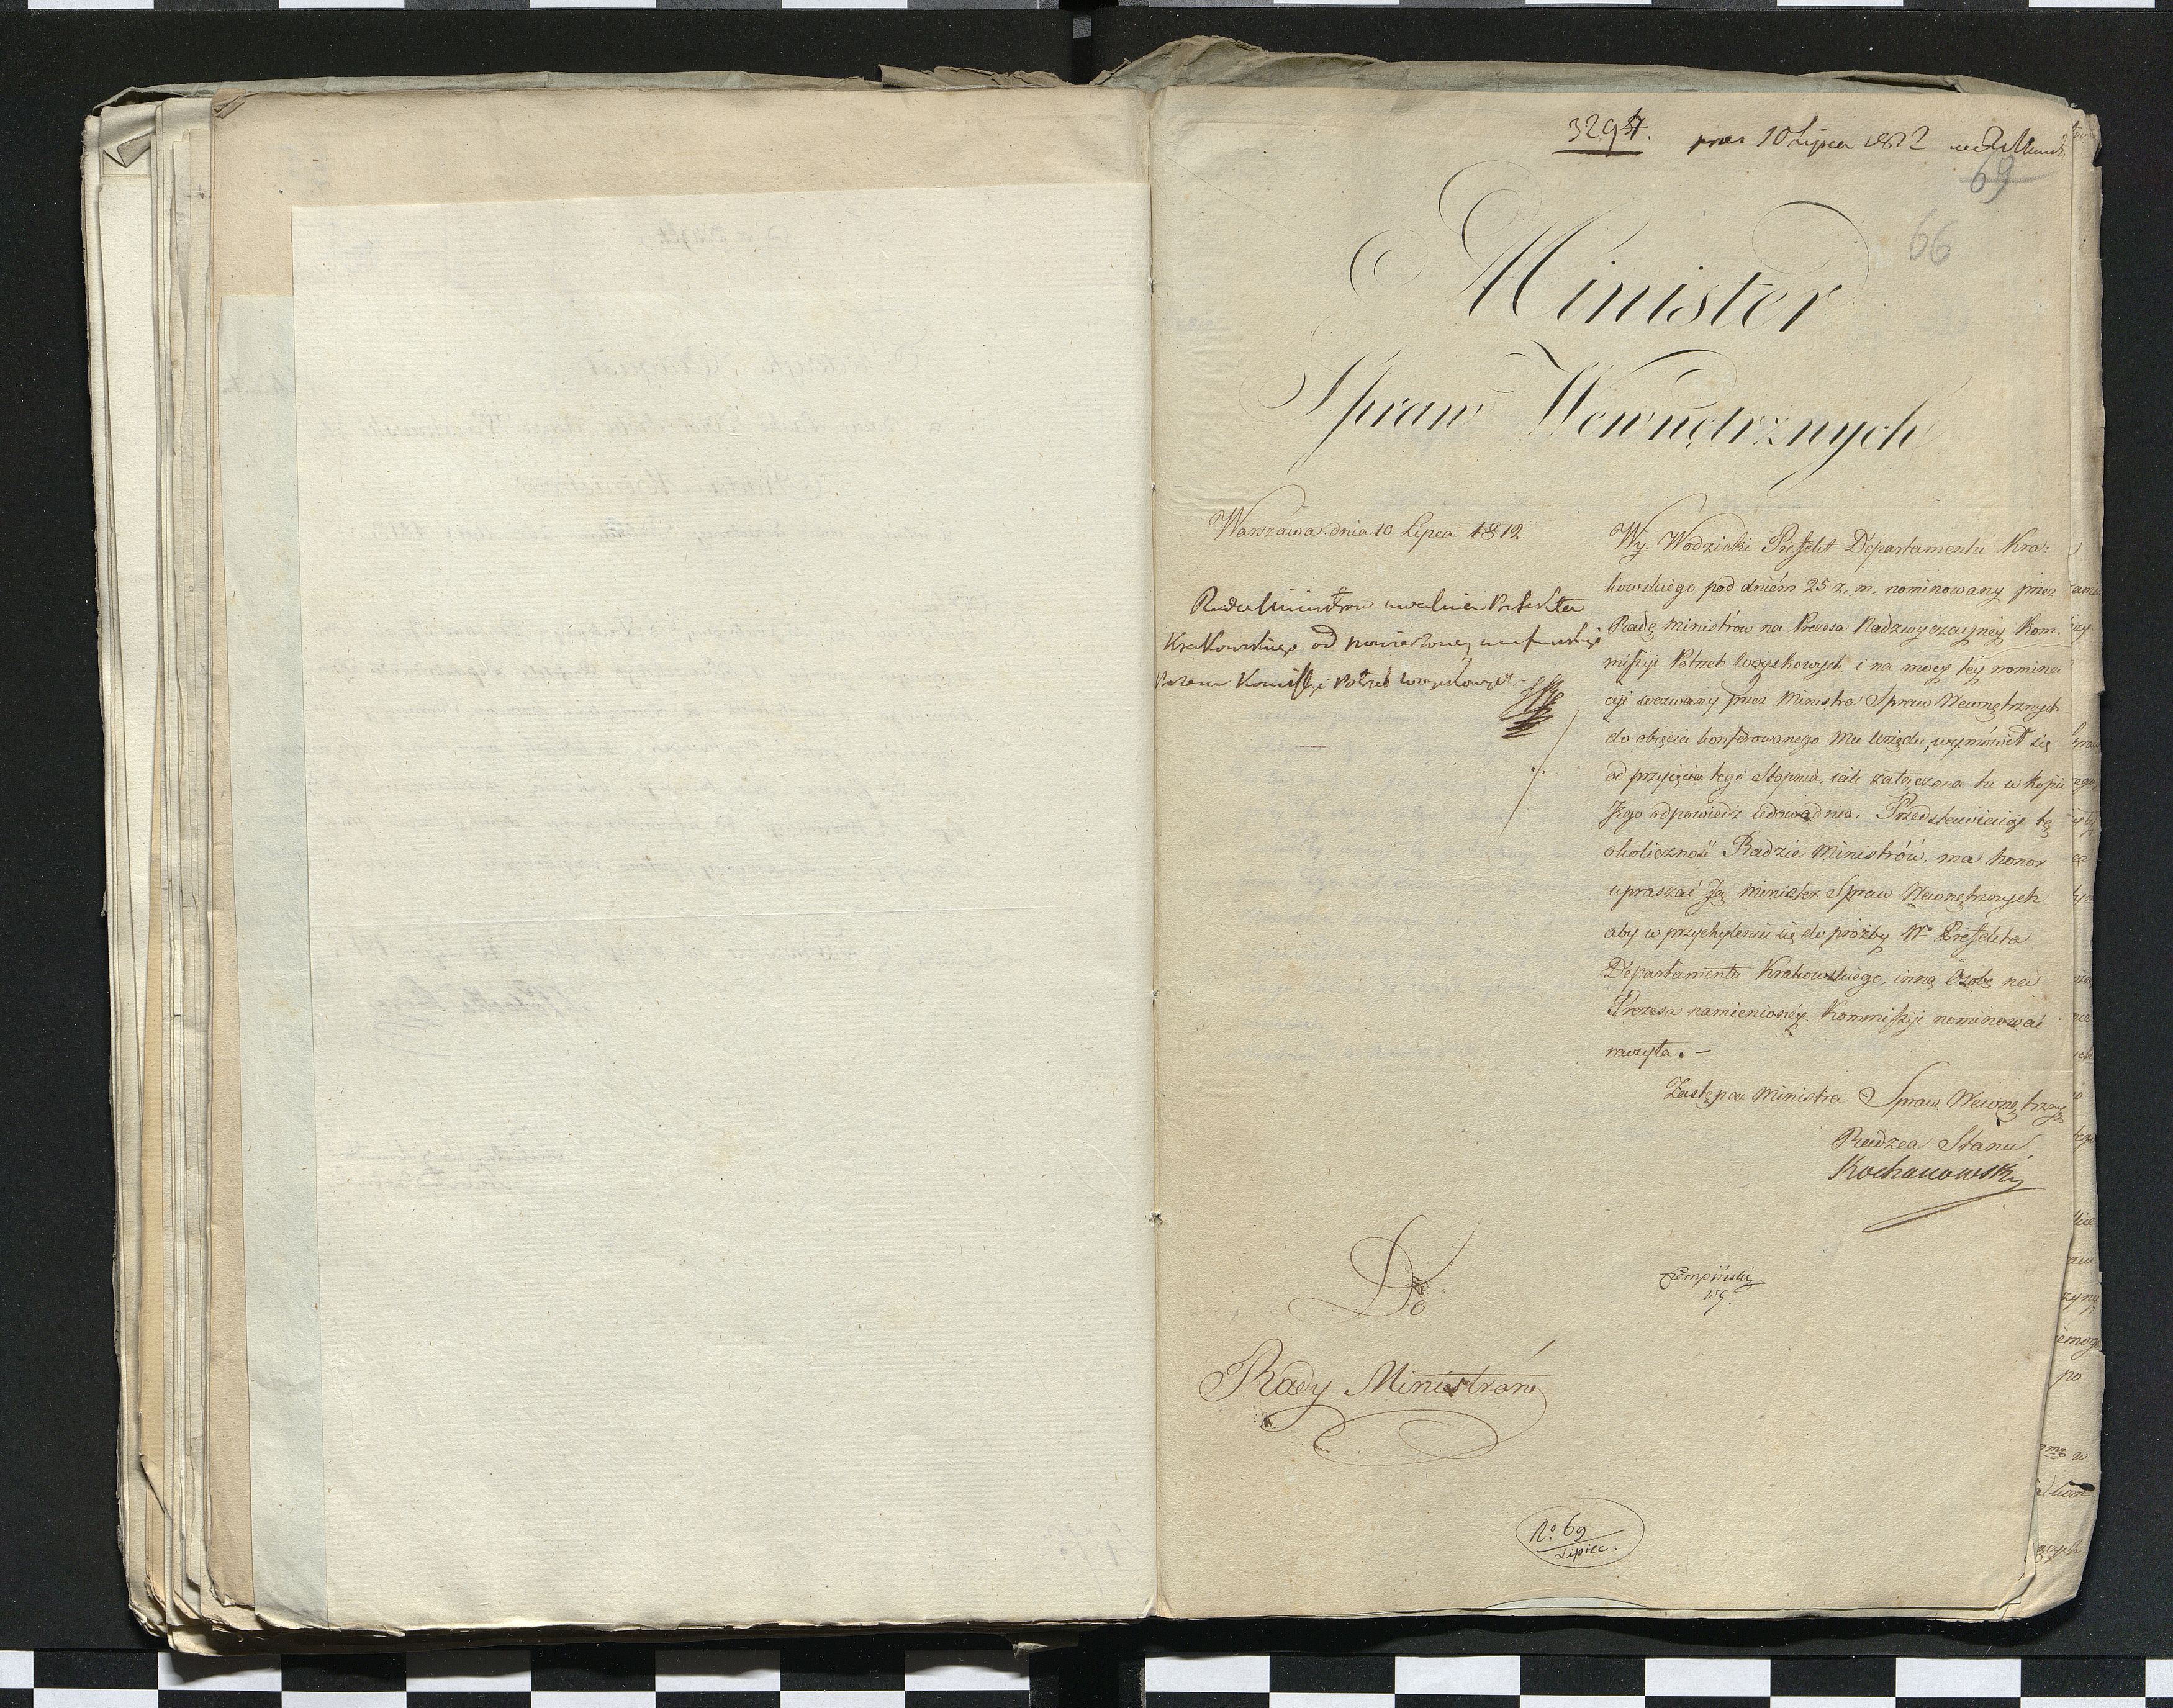 3297.
prez 10 Lipca 1812
69
66
Minister
Spraw Wewnętrznych
Warszawa dnia 10 Lipca 1812.
Rada Ministrów uwalnia Prefekta
Krakowskiego od powierzoney
Prezesa Komissyi Potrzeb woyskowych
Wy Wodzicki Prefekt Departamentu Kra-
kowskiego pod dniem 25 z. m. nominowany przez
Radę Ministrów na Prezesa Nadzwyczayney Kom-
missyi Potrzeb woyskowych, i na mocy tey nomina
cyi wezwany przez Ministra Spraw Wewnętrznych
do obięcia konferowanego Mu Urzędu, wymówił się
od przyięcia tego Stopnia, iak załączona tu w Kopii
Jego odpowiedź udowadnia. Przedstawiaiąc tę
okoliczność Radzie Ministrów, ma honor
upraszać Ją Minister Spraw Wewnętrznych
aby w przychyleniu się do prozby Wo Prefekta
Departamentu Krakowskiego, inną Osobę na
Prezesa namienioney Kommissyi nominować
raczyła. -
Zastępca Ministra Spraw Wewnętrznych
Radzca Stanu
Kochanowski
Do
Rady Ministrów
No. 69
Lipiec.